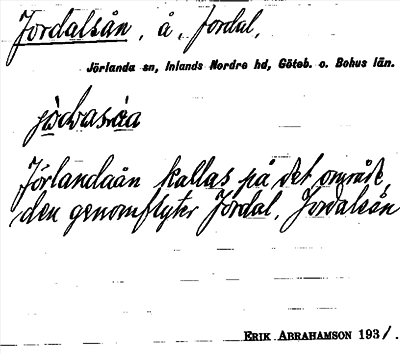 Jordalsån, å, Jordal,
Jörlanda sn, Inlands Nordre hd, Göteb. o. Bohus län.
Jörlandaån kallas på det område,
den genomflyter Jordal, Jordalsån
ERIK ABRAHAMSON 1931.